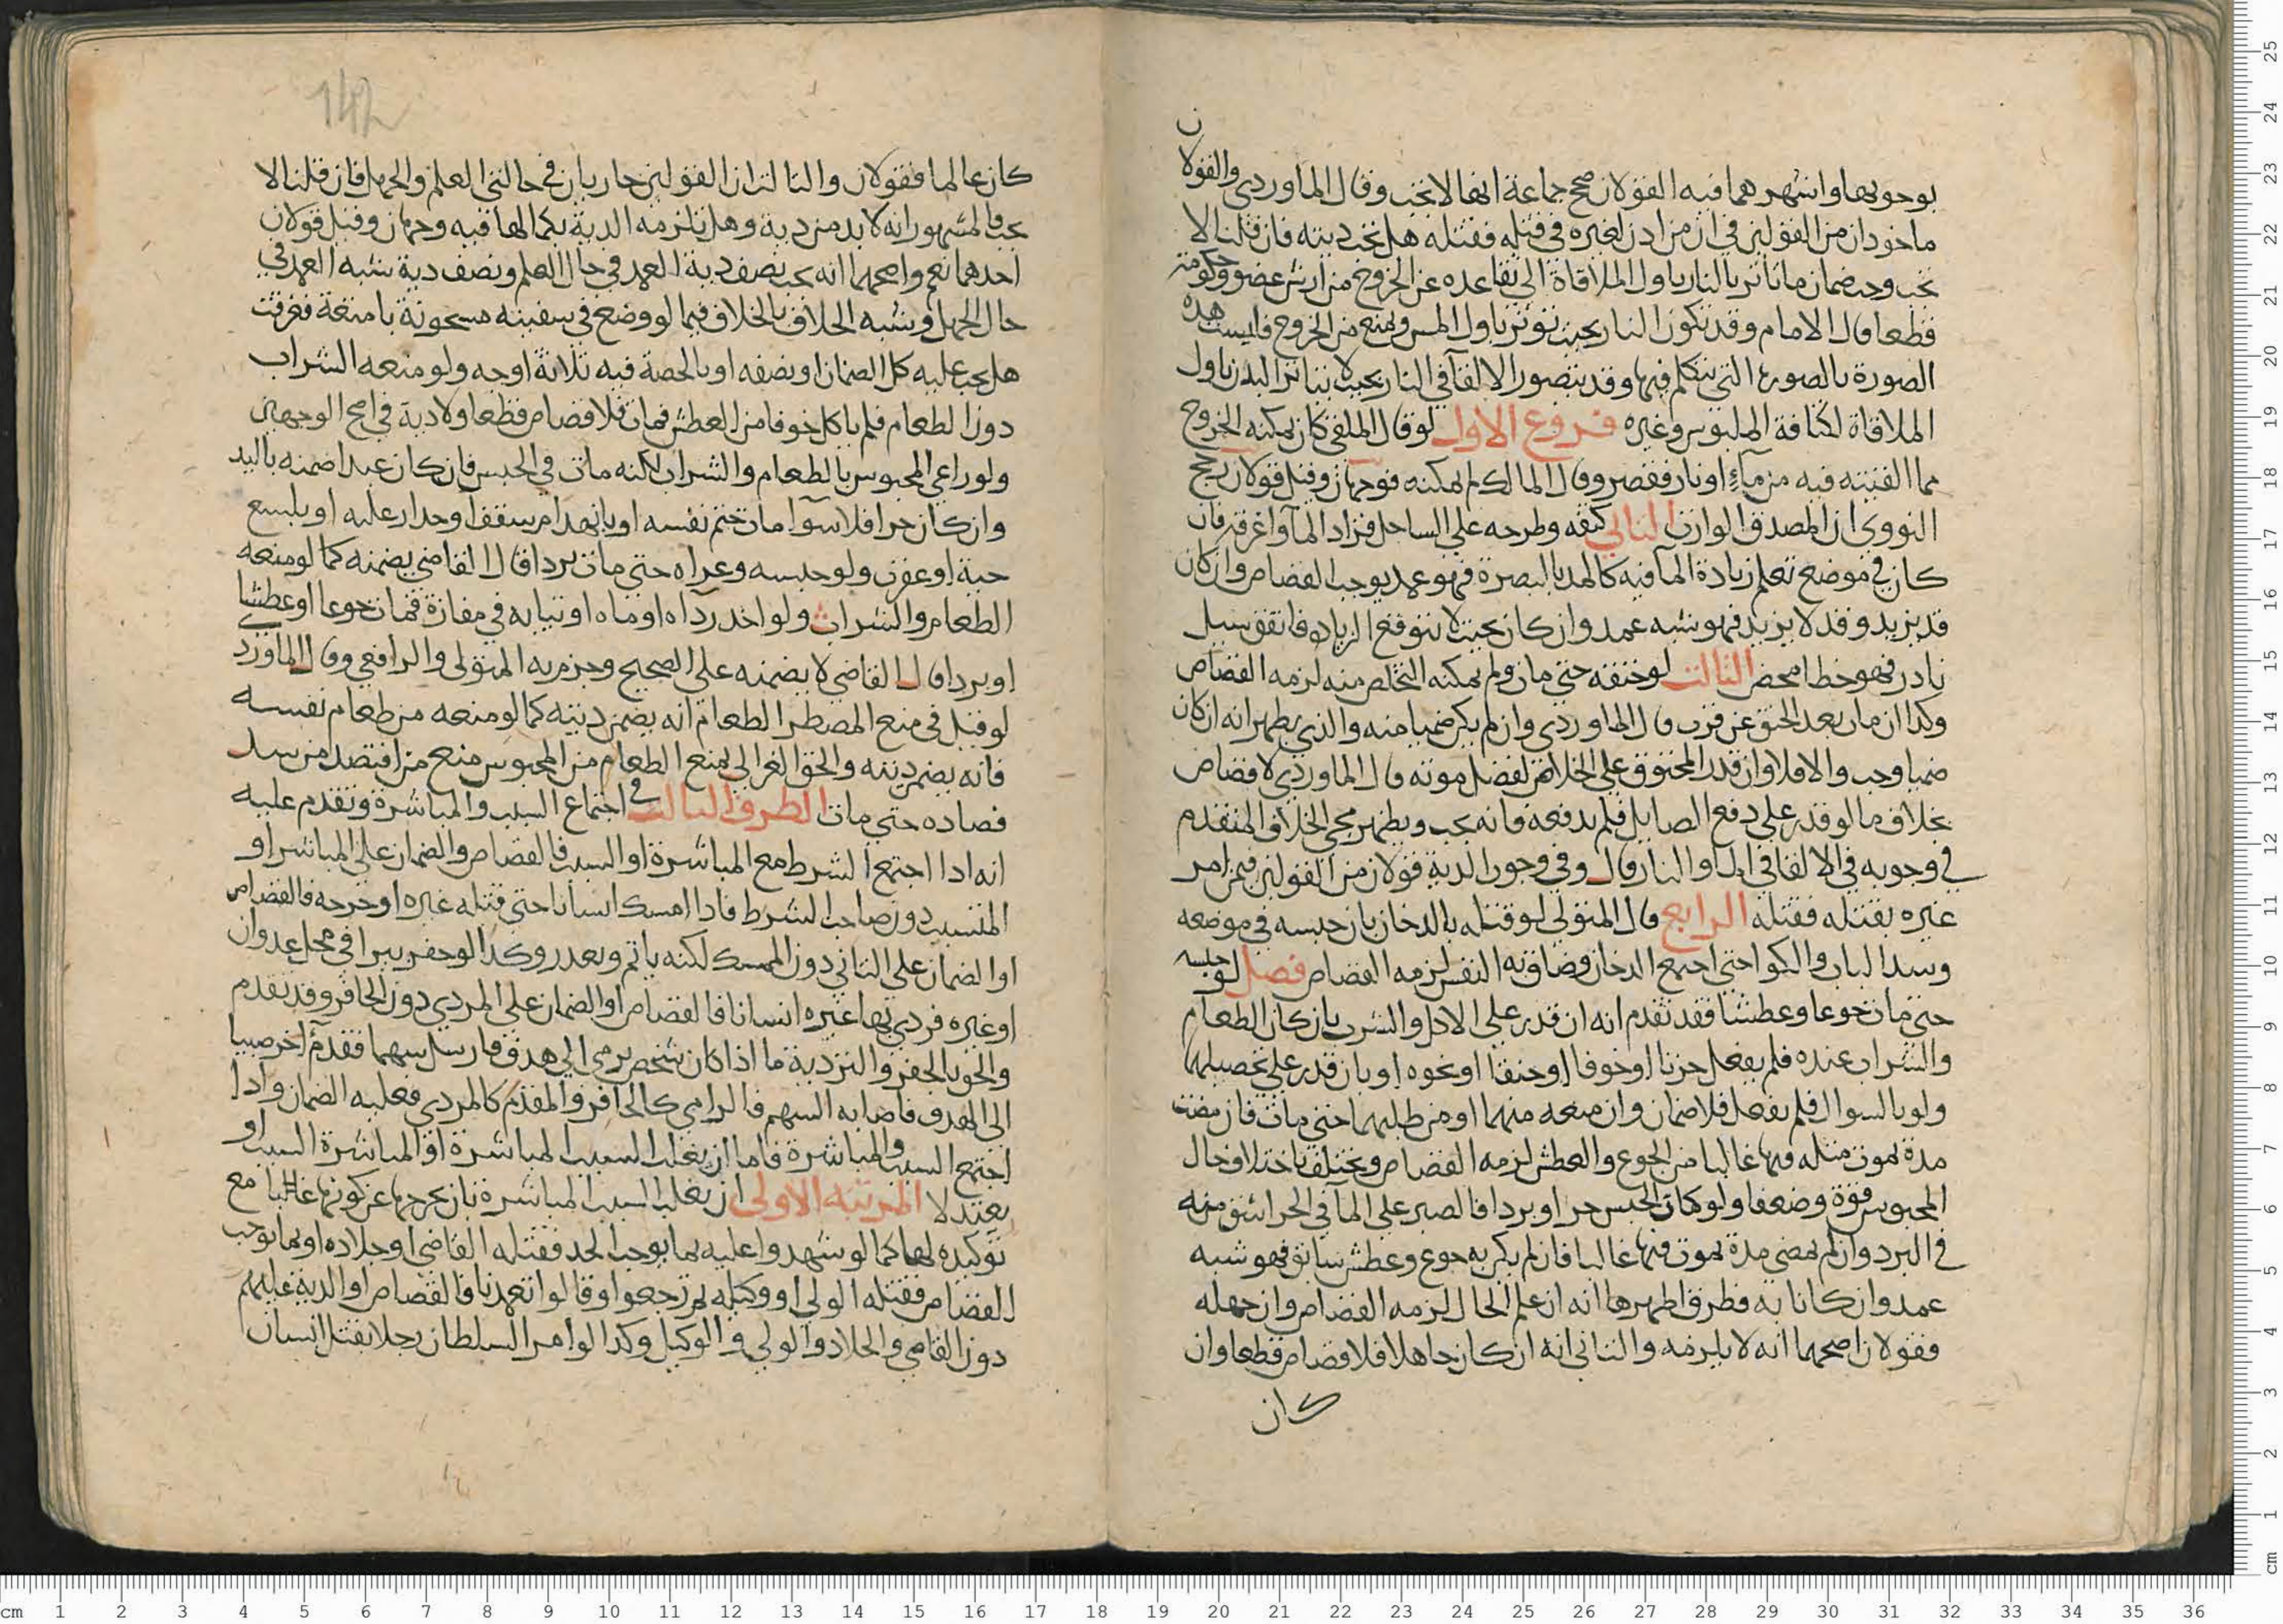 بوجوبها واشهرهما فيه القولان صحح جماعة انها لا تجب وقال الماوردي والقولان
ماخوذان من القولين في ان من اذن لغيره في قتله فقتله هل تجب ديته فان قلنا لا
تجب وجب ضمان ما تاثر بالنار باول الملاقاة الى تقاعده عن الخروج من ارش عضو وحكومة
قطعا قال الامام وقد تكون النار بحيث توثر باول المس وتمنع من الخروج فليست هذه
الصورة بالصورة التي نتكلم فيها وقد يتصور الالقآ في النار بحيث لا يتاثر البدن باول
الملاقاة لكثافة الملبوس وغيره فروع الاول لو قال الملقي كان يمكنه الخروج
مما القيته فيه من مآء او نار فقصر وقال المالك لم يمكنه فوجهان وقيل قولان رجح
النووي ان المصدق الوارث الثاني كتفه وطرحه على الساحل فزاد المآ واغرقه فان
كان في موضع تعلم زيادة المآ فيه كالمد بالبصرة فهو عمد يوجب القصاص وان كان
قد يزيد وقد لا يزيد فهو شبه عمد وان كان بحيث لا تتوقع الزيادة فاتفق سيل
نادر فهو خطا محض الثالث لو خنقه حتى مات ولم يمكنه التخلص منه لزمه القصاص
وكذا ان مات بعد الخنق عن قرب قال الماوردي وان لم يكن ضمنا منه والذي يظهر انه ان كان
ضمنا وجب والا فلا وان قدر المخنوق على الخلاص لفضل قوته قال الماوردي لا قصاص
بخلاف ما لو قدر على دفع الصايل فلم يدفعه فانه يجب ويظهر مجي الخلاف المتقدم
في وجوبه في الالقا في المآ والنار قال وفي وجوب الدية قولان من القولين فيمن امر
غيره بقتله فقتله الرابع قال المتولي لو قتله بالدخان بان حبسه في موضعه
وسد الباب والكوا حتى اجتمع الدخان وضاق به النفس لزمه القصاص فصل لو حبسه
حتى مات جوعا وعطشا فقد تقدم انه ان قدر على الاكل والشرب بان كان الطعام
والشراب عنده فلم يفعل حزنا او خوفا او حنقا او نحوه او بان قدر على تحصيلهما
ولو بالسوال فلم يفعل فلا ضمان وان منعه منهما او من طلبهما حتى مات فان مضت
مدة يموت مثله فيها غالبا من الجوع والعطش لزمه القصاص ويختلف باختلاف حال
المحبوس قوة وضعفا ولو كان الحبس حر او برد فالصبر على المآ في الحر اشق منه
في البرد وان لم تمضي مدة يموت فيها غالبا فان لم يكن به جوع وعطش سابق فهو شبه
عمد وان كانا به فطرق اظهرها انه ان علم الحال لزمه القصاص وان جهله
فقولان اصحهما انه لا يلزمه والثاني انه ان كان جاهلا فلا قصاص قطعا وان
كان
142
كان عالما فقولان والثالث ان القولين جاريان في حالتي العلم والجهل فان قلنا لا
يجب فالمشهور انه لا بد من دية وهل تلزمه الدية بكمالها فيه وجهان وقيل قولان
احدهما نعم واصحهما انه يجب نصف دية العمد في حال العلم ونصف دية شبه العمد في
حال الجهل وشبه الخلاف بالخلاف فيما لو وضع في سفينة مسحونة بامتعة فغرقت
هل يجب عليه كل الضمان او نصفه او بالحصة فيه ثلاثة اوجه ولو منعه الشراب
دون الطعام فلم ياكل خوفا من العطش فمات فلا قصاص قطعا ولا دية في اصح الوجهين
ولو راعي المحبوس بالطعام والشراب لكنه مات في الحبس فان كان عبدا ضمنه باليد
وان كان حرا فلا سوآ مات حتف نفسه او بانهدام سقف او جدار عليه او بلسع
حية او عقرب ولو حبسه وعراه حتى مات بردا قال القاضي يضمنه كما لو منعه
الطعام والشراب ولو اخذ رداه او ماه او ثيابه في مفازة فمات جوعا او عطشا
او بردا قال القاضي لا يضمنه على الصحيح وجزم به المتولي والرافعي وقال الماوردي
لو قيل في منع المضطر الطعام انه يضمن ديته كما لو منعه من طعام نفسه
فانه يضمن ديته والحق الغزالي بمنع الطعام من المحبوس منع من افتصد من سد
فصاده حتى مات الطرف الثالث في اجتماع السبب والمباشرة وتقدم عليه
انه اذا اجتمع الشرط مع المباشرة او السبب فالقصاص والضمان على المباشر او
المتسبب دون صاحب الشرط فاذا امسك انسانا حتى قتله غيره او جرحه فالقصاص
او الضمان على الثاني دون الممسك لكنه ياثم ويعذر وكذا لو حفر بيرا في محل عدوان
او غيره فردي بها غيره انسانا فالقصاص او الضمان على المردي دون الحافر وقد تقدم
والحق بالحفر والتردية ما اذا كان شخص يرمي الى هدف فارسل سهما فقدم آخر صبيا
الى الهدف فاصابه السهم فالرامي كالحافر والمقدم كالمردي فعليه الضمان واذا
اجتمع السبب والمباشرة فاما ان يغلب السبب المباشرة او المباشرة السبب او
يعتدلا المرتبة الاولى ان يغلب السبب المباشرة بان يخرجها عن كونها غالبا مع
توكيده لها كما لو شهدوا عليه بما يوجب الحد فقتله القاضي او جلاده او بما يوجب
القصاص فقتله الولي او وكيله ثم رجعوا وقالوا تعمدنا فالقصاص او الدية عليهم
دون القاضي والجلاد والولي والوكيل وكذا لو امر السلطان رجلا بقتل انسان